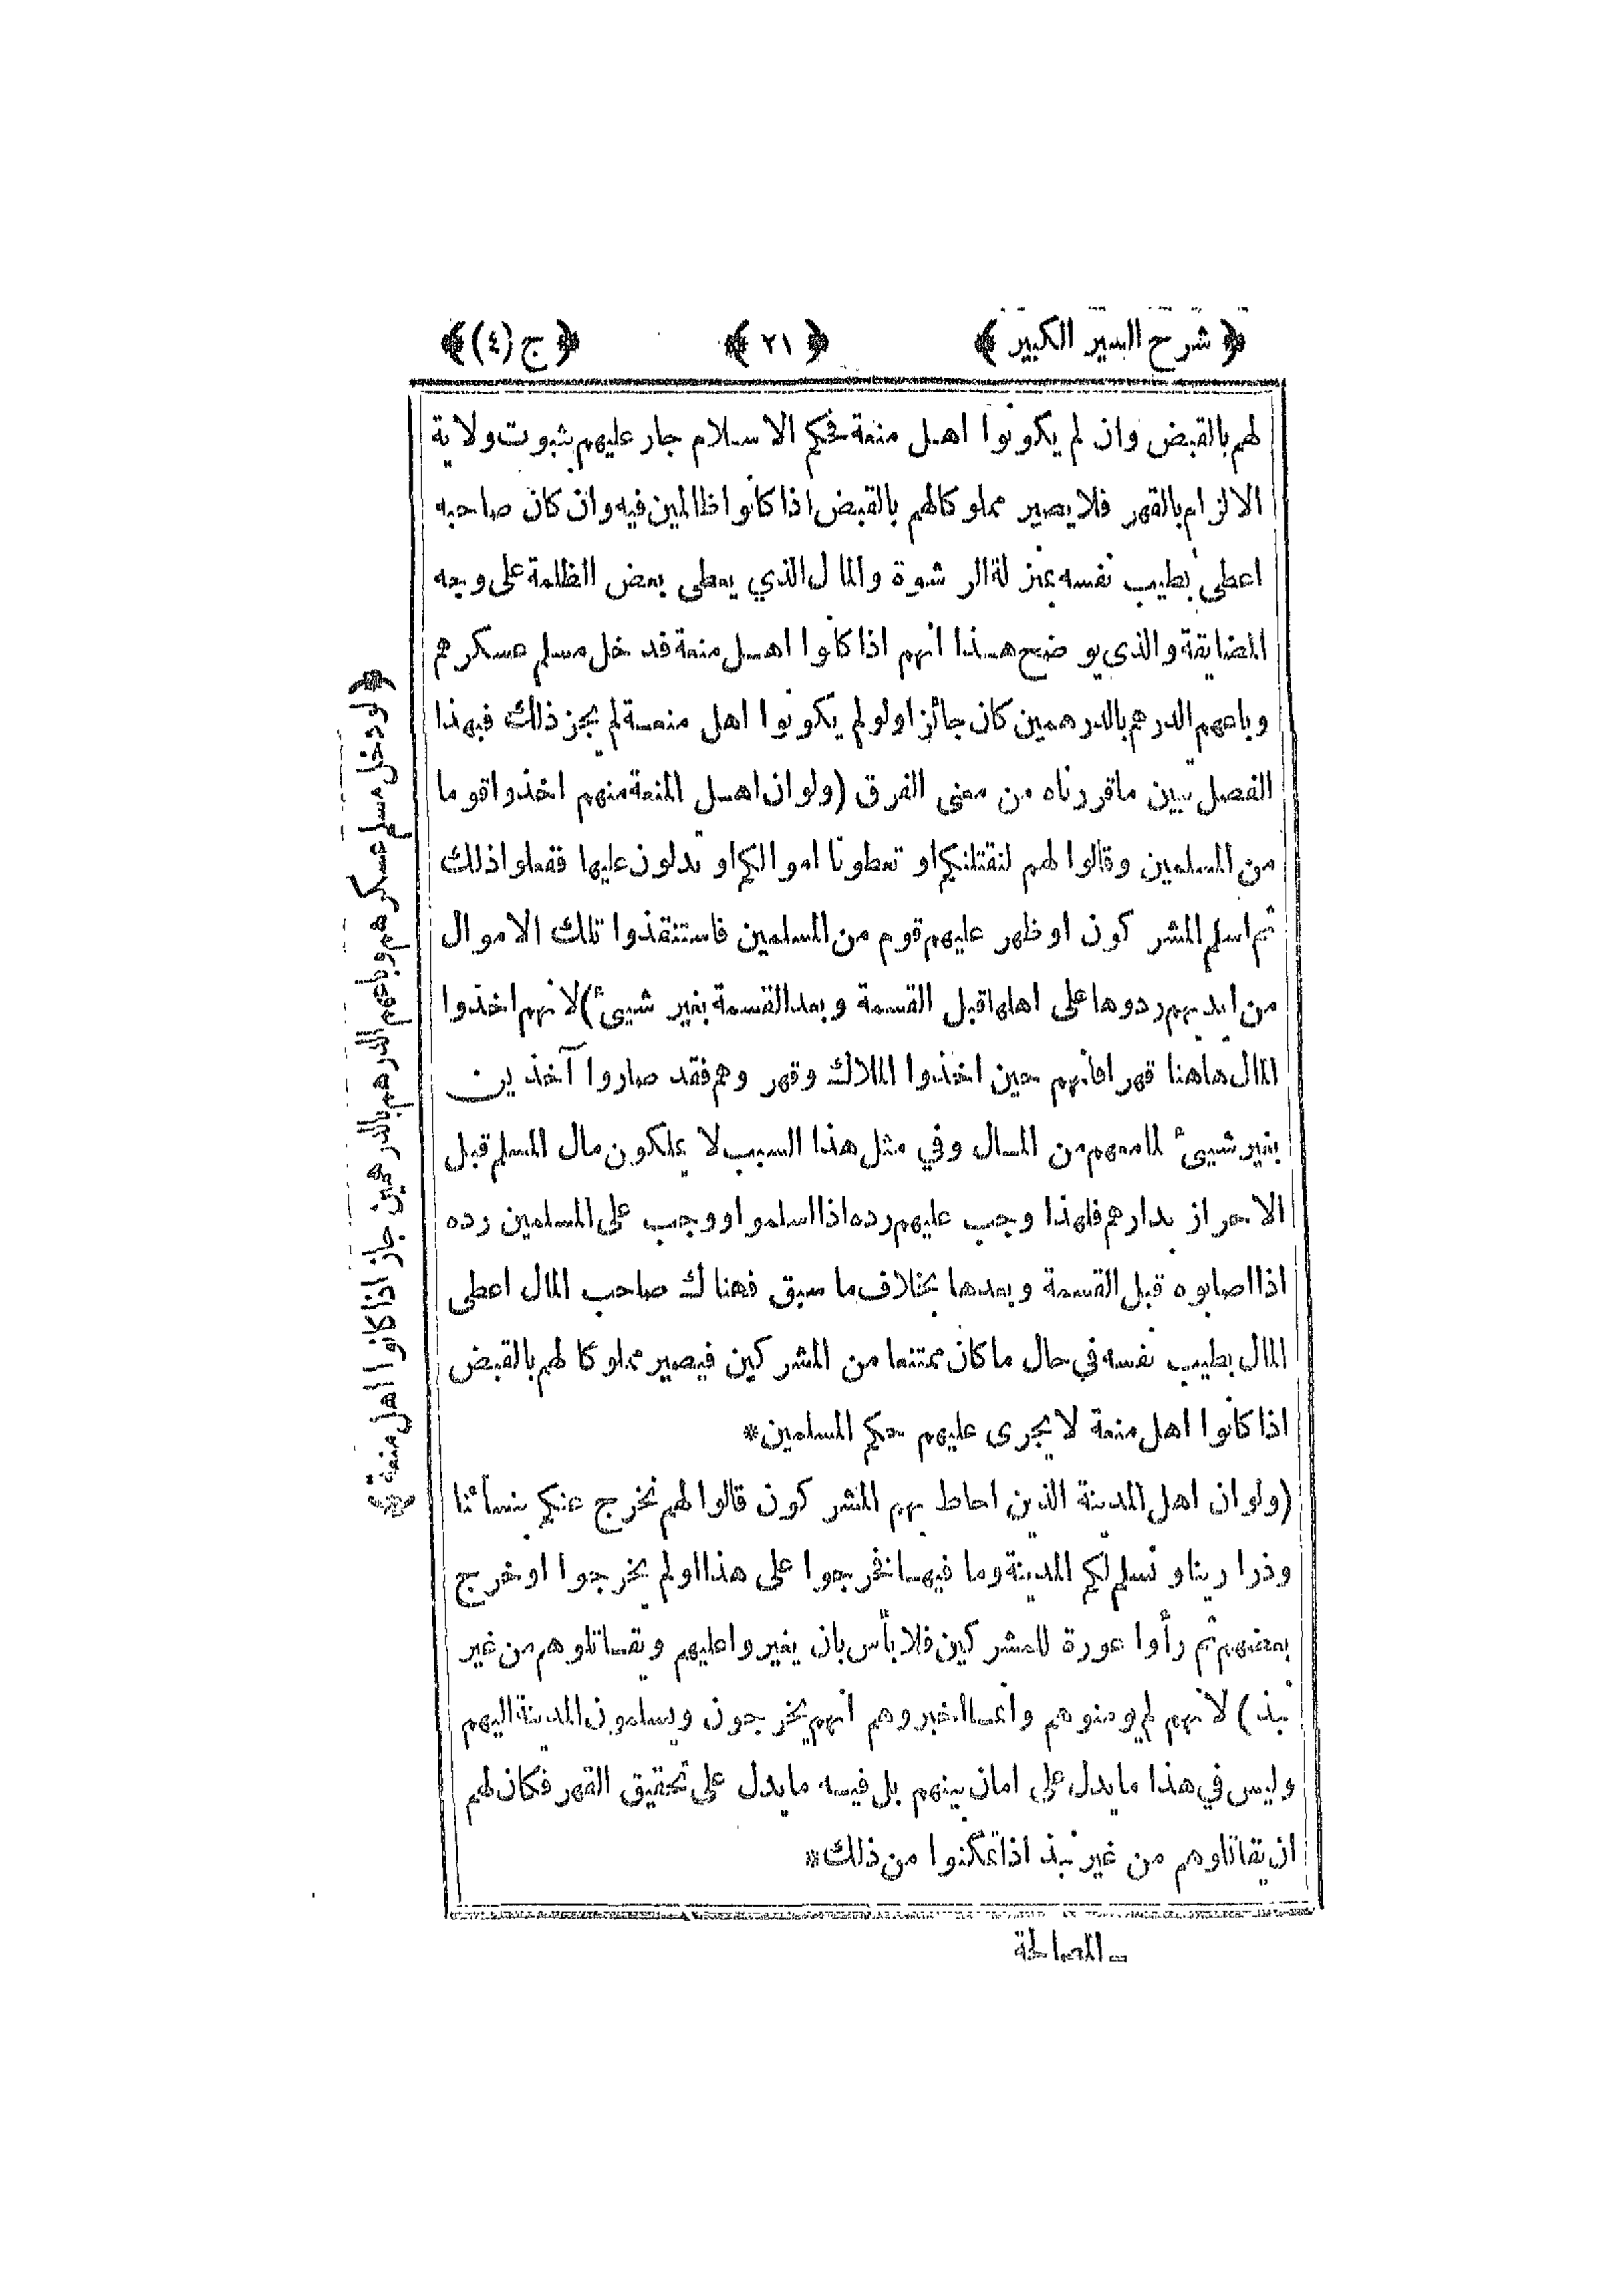 ﴿ شرح السير الكبير ﴾ ﴿ ٢١ ﴾ ﴿ ج (٤) ﴾
لهم بالقبض وان لم يكونوا اهل منعة فحكم الاسلام جار عليهم بثبوت ولاية
الالزام بالقهر فلا يصير مملوكالهم بالقبض اذا كانوا ظالمين فيه وان كان صاحبه
اعطى بطيب نفسه بمنزلة الرشوة والمال الذي يعطى بعض الظلمة على وجه
المضايقة والذي يوضح هذا انهم اذا كانوا اهل منعة فدخل مسلم عسكرهم
وباعهم الدرهم بالدرهمين كان جائزا ولو لم يكونوا اهل منعة لم يجز ذلك فبهذا
الفصل يبين ماقررناه من معنى الفرق (ولو ان اهل المنعة منهم اخذوا قوما
من المسلمين وقالوا لهم لنقتلنكم او تعطونا اموالكم او تدلون عليها ففعلوا ذلك
ثم اسلم المشركون او ظهر عليهم قوم من المسلمين فاستنقذوا تلك الاموال
من ايديهم ردوها على اهلها قبل القسمة وبعد القسمة بغير شيئ) لانهم اخذوا
المال هاهنا قهرا فانهم حين اخذوا الملاك وقهروهم فقد صاروا آخذين
بغير شيئ لما معهم من المال وفي مثل هذا السبب لا يملكون مال المسلم قبل
الاحراز بدارهم فلهذا وجب عليهم رده اذا اسلموا ووجب على المسلمين رده
اذا اصابوه قبل القسمة وبعدها بخلاف ما سبق فهناك صاحب المال اعطى
المال بطيب نفسه في حال ما كان ممتنعا من المشركين فيصير مملوكا لهم بالقبض
اذا كانوا اهل منعة لا يجرى عليهم حكم المسلمين*
(ولو ان اهل المدينة الذين احاط بهم المشركون قالوا لهم نخرج عنكم بنسائنا
وذرارينا ونسلم لكم المدينة وما فيها فخرجوا على هذا او لم يخرجوا او خرج
بعضهم ثم رأوا عورة للمشركين فلا بأس بان يغيروا عليهم وتقاتلوهم من غير
نبذ) لانهم لم يومنوهم وانما اخبروهم انهم يخرجون ويسلمون المدينة اليهم
وليس في هذا ما يدل على امان بينهم بل فيه ما يدل على تحقيق القهر فكان لهم
ان يقاتلوهم من غير نبذ اذا تمكنوا من ذلك*
المصالحة
﴿ لو دخل مسلم عسكرهم وباعهم الدرهم بالدرهمين جاز اذا كانوا اهل منعة ﴾